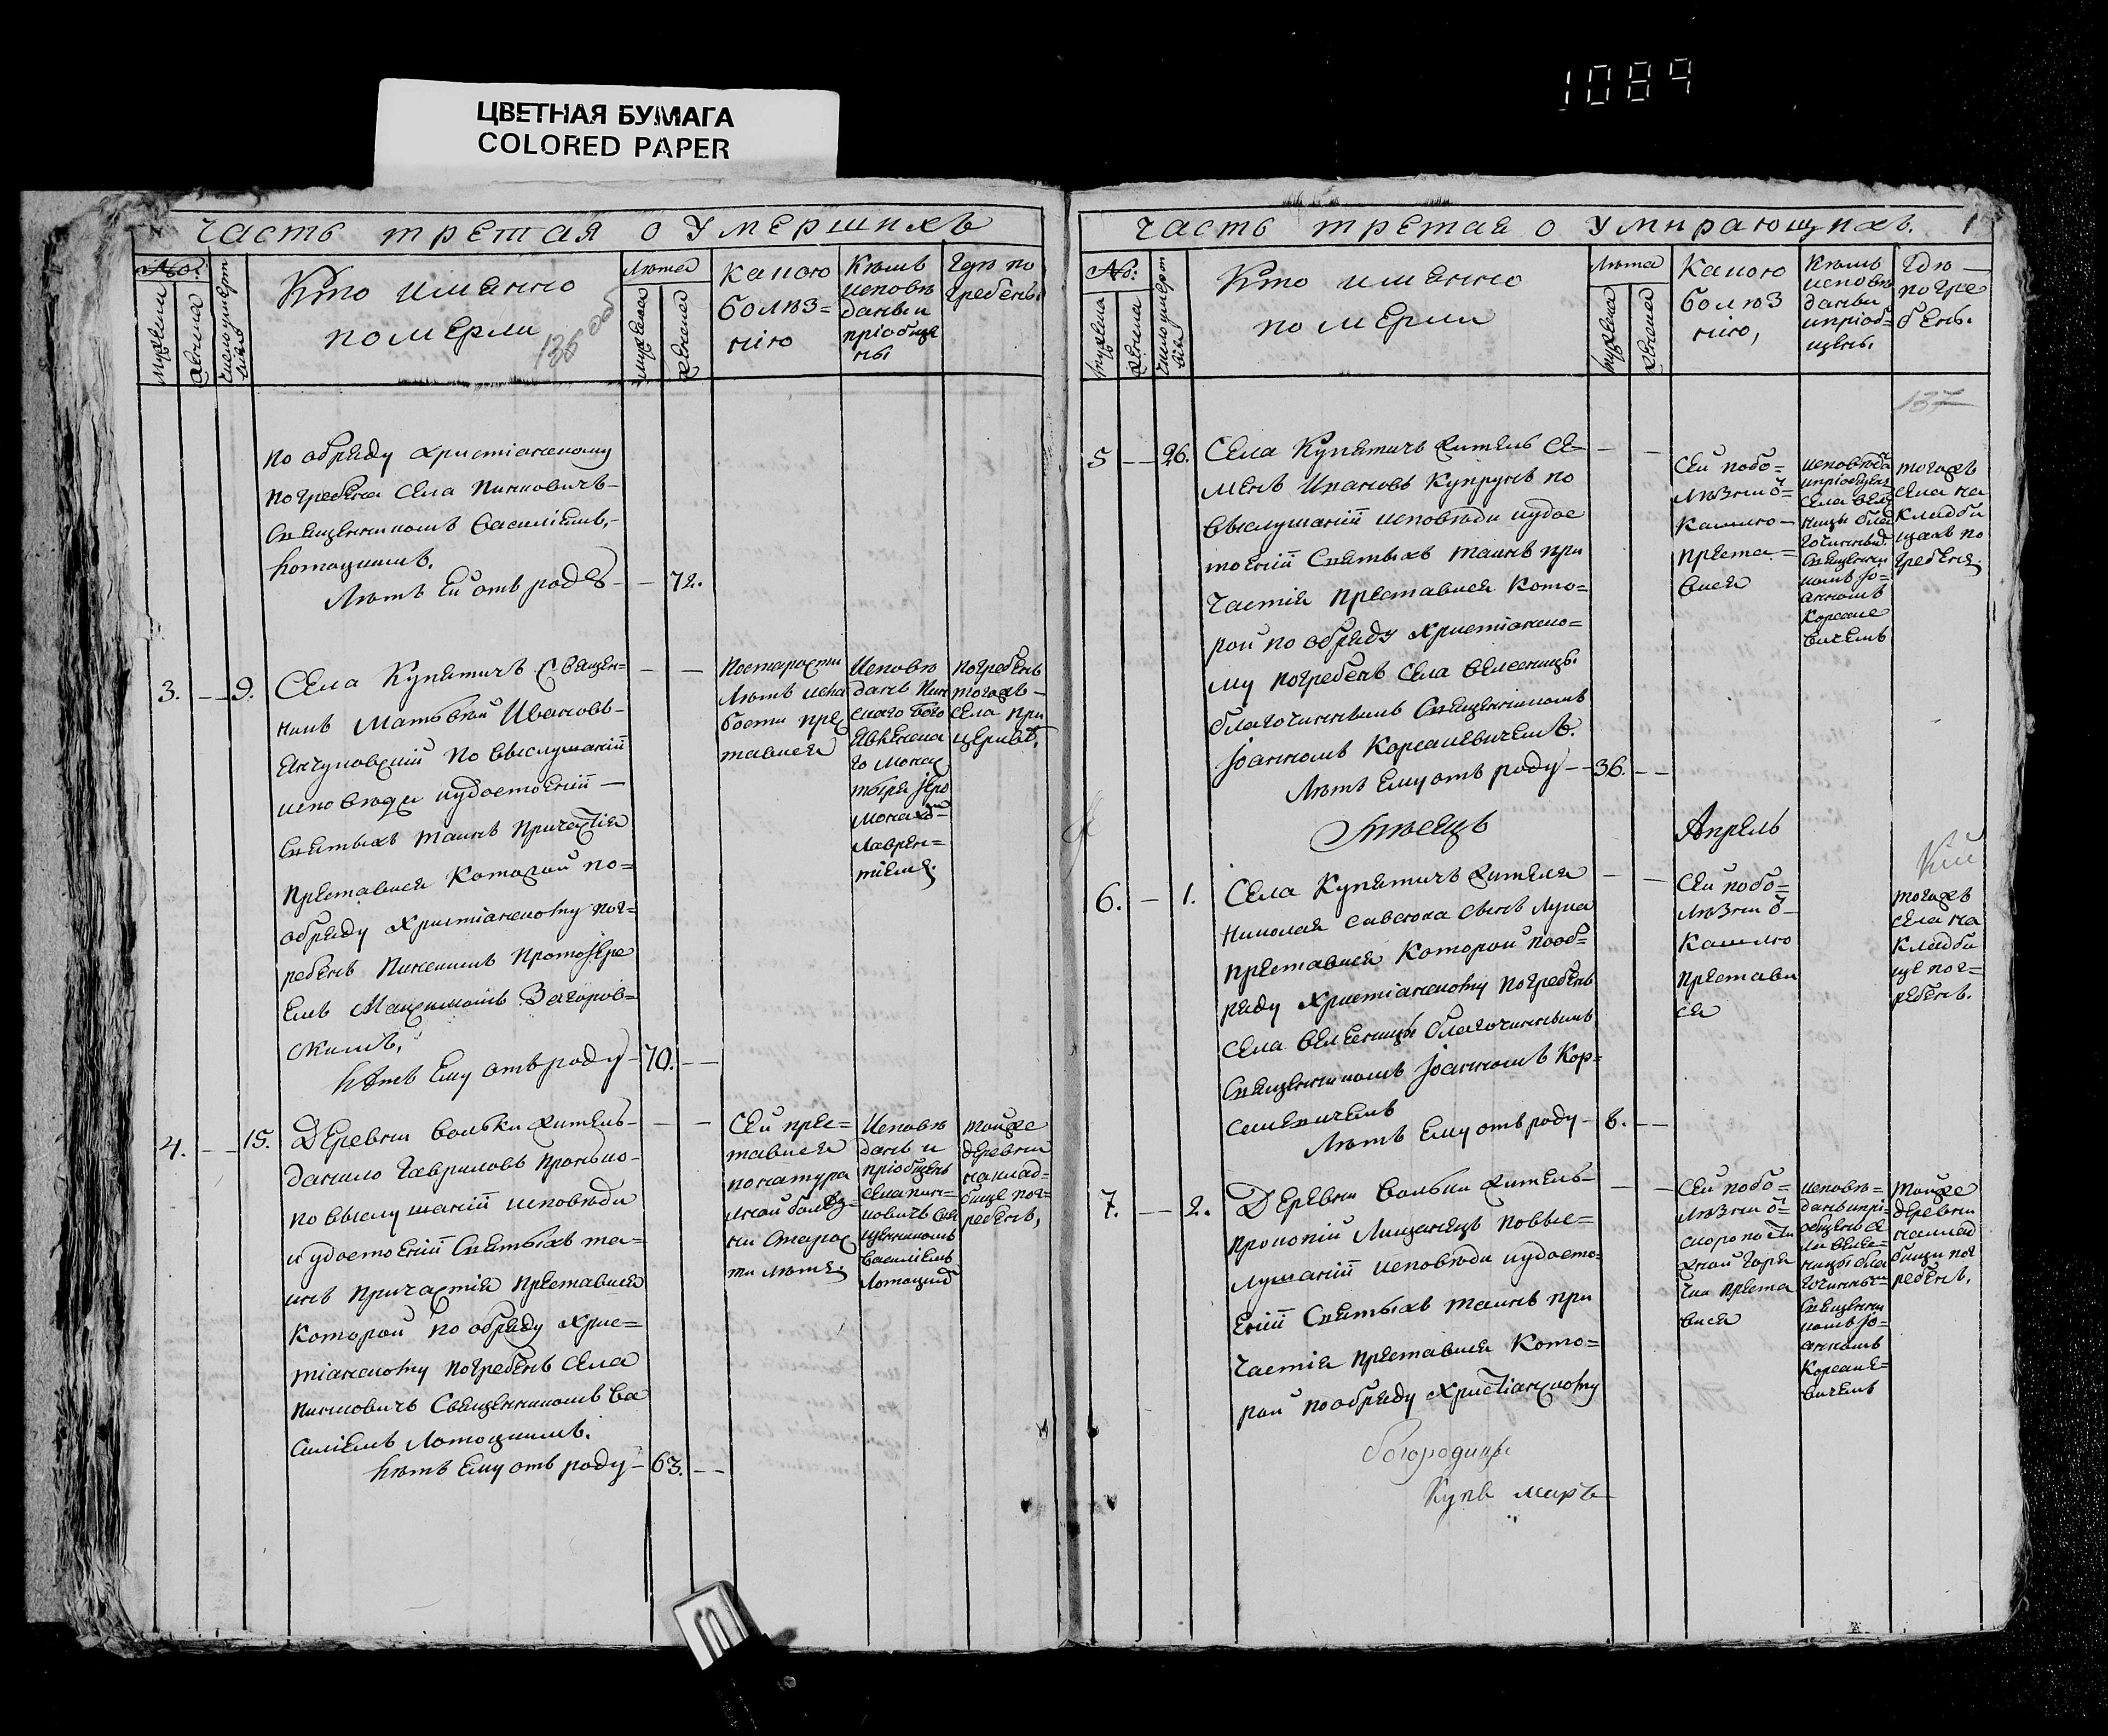 1089
ЦВЕТНАЯ БУМАГА
COLORED PAPER
часть третая о умершихъ
№:
мужеска
женска
число умерт
вій
Кто именно
померли
136 об
Лѣта
мужеска
женска
какою
болѣз=
нію
Кѣмъ
исповѣ
даны и
пріобще
ны
Гдѣ по
гребены
по обряду христіанскому
погребена села Пинковичъ
Священникомъ Василіемъ
Лотоцкимъ.
Лѣтъ ей отъ роду — 72.
3. — 9.
Села Купятичъ Священ=
никъ Матвѣй Ивановъ
Янчуловскій по выслушаніи
исповѣди и удостоеніи —
Святыхъ таинъ Причастія
преставися которой по=
обряду христіанскому пог=
ребенъ Пинскимъ Протоіере
емъ Максимомъ Загоров=
скимъ,
Лѣтъ ему отъ роду — 70. —
По старости
лѣтъ и сла
бости пре
тавися
Исповѣ
данъ Пин
скаго бого
явленска
го монас
тыря Іеро
монахо
Лаврен=
тіемъ.
погребенъ
тогожъ —
села при
церквѣ.
4. — 15.
Деревни Вольки житель
Данило Гавриловъ
по выслушаніи исповѣди
и удостоеніи Святыхъ та=
инъ Причастія преставися
которой по обряду хрис=
тіанскому погребенъ села
Пинковичъ Священникомъ Ва
силіемъ Лотоцкимъ.
Лѣтъ ему отъ роду — 63. —
Сей прес=
тавися
понатура
лной болѣз=
ни старос
ти лѣтъ.
Исповѣ
данъ и
пріобщенъ
села пин=
ковичъ Свя
щенникомъ
Василіемъ
Лотоцкимъ
Тойже
деревни
наклад=
бище пог=
ребенъ,
часть третая о умирающихъ. 1
№:
мужеска
женска
число умерт
вій
Кто именно
померли
Лѣта
мужеска
женска
Какою
болѣз
нію,
Кѣмъ
исповѣ
даны
и пріоб=
щены.
Гдѣ —
погре
бены.
137
5 — 26.
Села Купятичъ житель Се=
менъ Ивановъ Купрунъ по
выслушаніи исповѣди и удос
тоеніи Святыхъ таинъ при
частія преставися кото=
рой по обряду христіанско=
му погребенъ села Вылесницъ
благочиннымъ Священникомъ
Іоанномъ Корсакевичемъ.
Лѣтъ ему отъ роду — 36. —
Сей побо=
лѣзни о=
кашлю —
преста=
вися
исповѣда
и пріобщенъ
села Веле
ницы бла
гочиннымъ
Священни
комъ Іо=
анномъ
Корсаке
вичемъ
тогожъ
села на
кладби
щахъ по
гребенъ.
Мѣсяцъ
Апрель
6. — 1.
Села Купятичъ жителя
Николая Савсюка сынъ Лука
преставися которой по об=
ряду христіанскому погребенъ
села Велесницы благочиннымъ
Священникомъ Іоанномъ Кор=
сакевичемъ
Лѣтъ ему отъ роду — 8. —
Сей побо=
лѣзни о=
кашлю
престави
ся
тогожъ
села на
кладби
ще пог=
ребенъ.
7. — 2.
Деревни Вольки житель
Прокопій Лищанецъ по выс=
лушаніи исповѣди и удосто=
еніи Святыхъ таинъ при
частія преставися кото=
рой по обряду христіанскому
Сей побо=
лѣзни о=
скоропости
жной горя
чки преста
вися
исповѣ=
данъ и прі=
общенъ се
ла Веле=
ницы бла
гочиннымъ
Священни
комъ Іо=
анномъ
Корсаке=
вичемъ
Тойже
деревни
наклад
бищи пог
ребенъ.
богородицы
Купв миръ